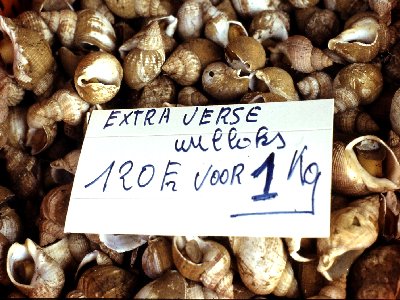 EXTRA VERSE
wulloks
120 Fr VOOR 1 Kg